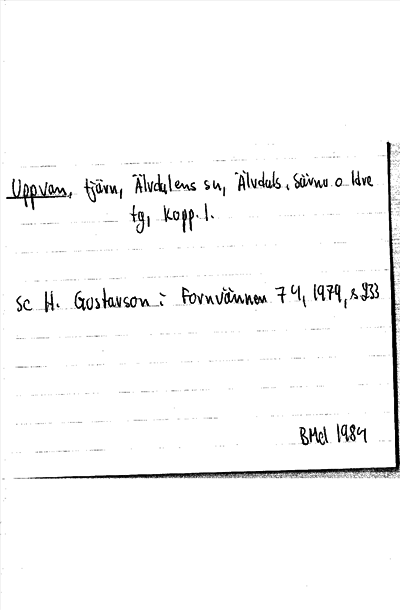 Uppvan, tjärn, Älvdalens sn, Älvdals, Särna o Idre
tg, Kopp. l.
se H. Gustavson i Fornvännen 74, 1979, s 233
BMd 1984